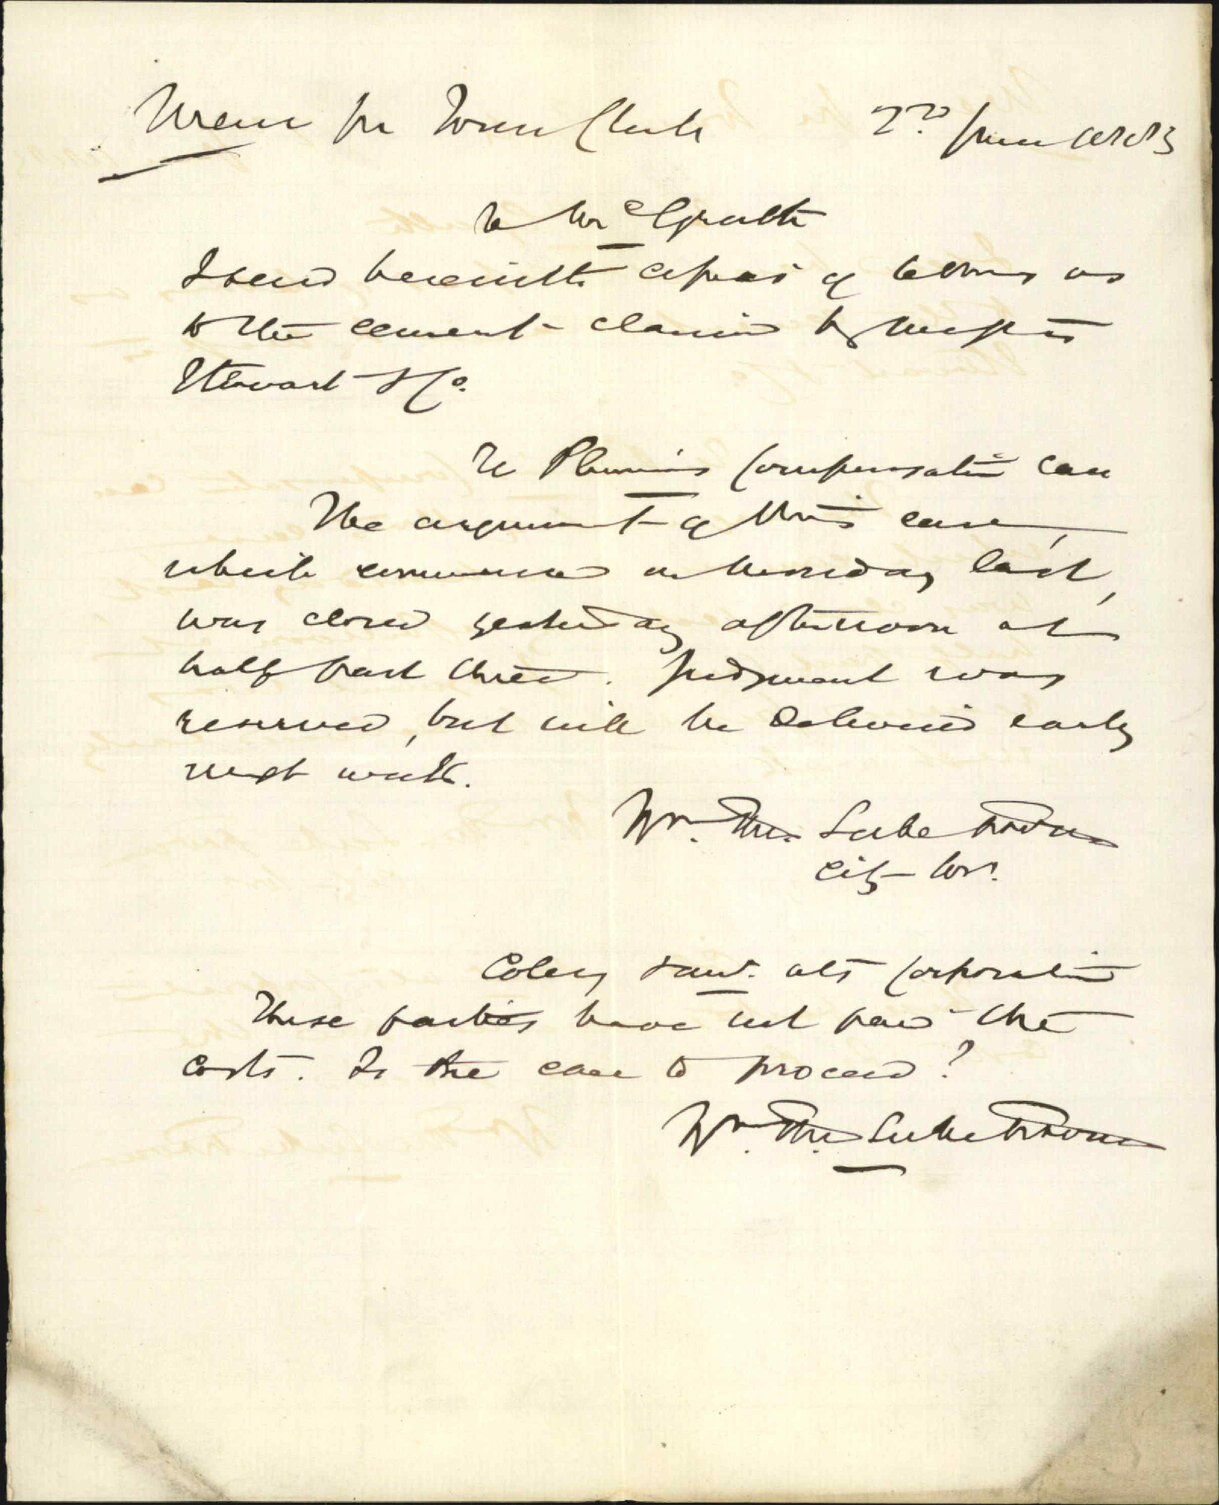 Memo for Town Clerk 2nd June 1883
re McGrath
I send herewith copies of letters as
to the cement claimed by Messrs
Stewart & Co.
re Plummers Compensation Case
The argument of this case,
which commenced on Monday last,
was closed yesterday afternoon at
half past three. Judgment was
reserved, but will be delivered early
next week.
Wm. Thos. Luke
City Sol.
and anr. ats Corporation
These parties have not paid the
costs. Is the case to proceed?
Wm. Thos. Luke